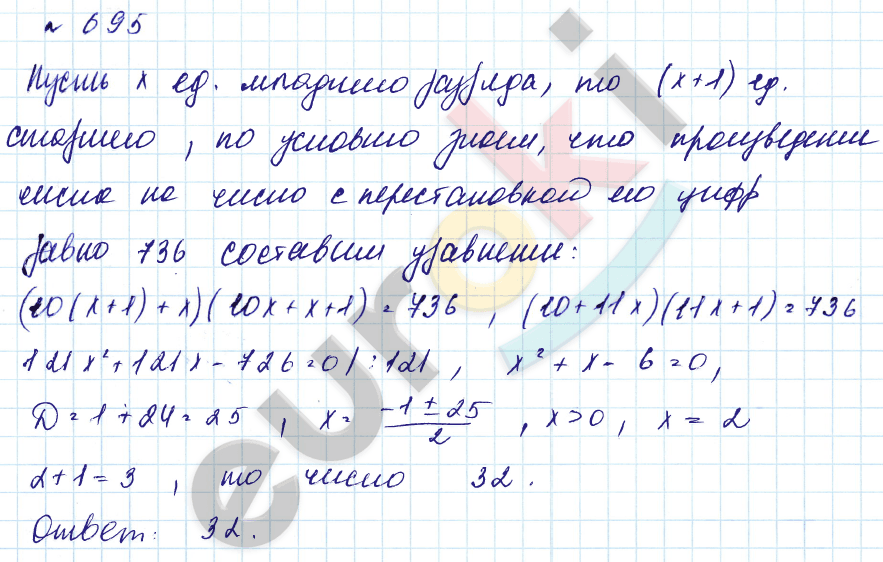 № 695
Пусть x ед. младшего разряда, то (x+1) ед.
старшего, по условию знаем, что произведение
числа на число с перестановкой его цифр
равно 736 составим уравнение:
(10(x+1)+x)(10x+x+1)=736, (10+11x)(11x+1)=736
121x²+121x-726=0/:121, x²+x-6=0,
D=1+24=25, x=\frac{-1±25}{2}, x>0, x=2
2+1=3, то число 32.
Ответ: 32.
euroki